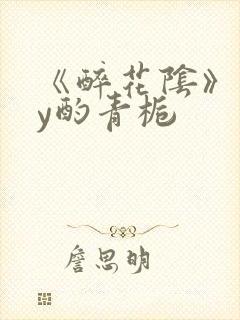 《醉花陰》
y酌青梔
詹思明